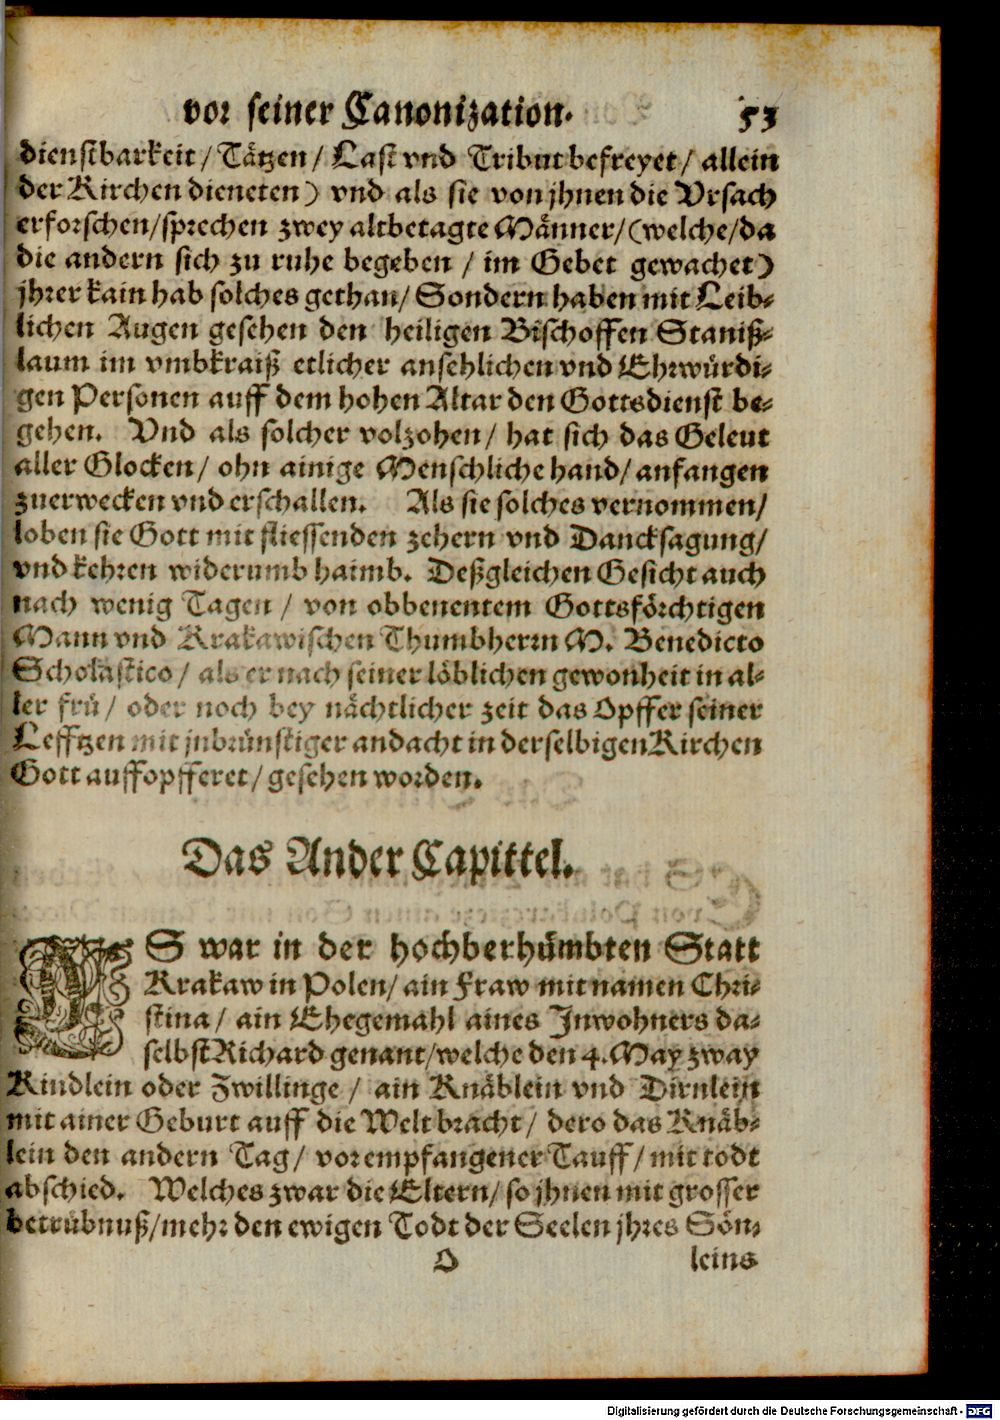 vor seiner Canonization. 53
dienstbarkeit/ Tätzen/ Last vnd Tribut befreyet/ allein
der Kirchen dieneten) vnd als sie von jhnen die Vrsach
erforschen/ sprechen zwey altbetagte Männer/ (welche/ da
die andern sich zu ruhe begeben / im Gebet gewachet)
jhrer kain hab solches gethan/ Sondern haben mit Leib-
lichen Augen gesehen den heiligen Bischoffen Staniß-
laum im vmbkraiß etlicher ansehlichen vnd Ehrwürdi-
gen Personen auff dem hohen Altar den Gottsdienst be-
gehen. Vnd als solcher volzohen/ hat sich das Geleut
aller Glocken/ ohn ainige Menschliche hand/ anfangen
zuerwecken vnd erschallen. Als sie solches vernommen/
loben sie Gott mit fliessenden zehern vnd Dancksagung/
vnd kehren widerumb haimb. Deßgleichen Gesicht auch
nach wenig Tagen / von obbenentem Gottsförchtigen
Mann vnd Krakawischen Thumbherrn M. Benedicto
Scholastico / als er nach seiner löblichen gewonheit in al-
ler frü/ oder noch bey nächtlicher zeit das Opffer seiner
Lefftzen mit jnbrünstiger andacht in derselbigen Kirchen
Gott auffopfferet/ gesehen worden.
Das Ander Capittel.
ES war in der hochberhümbten Statt
Krakaw in Polen/ ain Fraw mit namen Chri-
stina/ ain Ehegemahl aines Inwohners da-
selbst Richard genant/ welche den 4. May zway
Kindlein oder Zwillinge / ain Knäblein vnd Dirnlein
mit ainer Geburt auff die Welt bracht/ dero das Knäb-
lein den andern Tag/ vor empfangener Tauff/ mit todt
abschied. Welches zwar die Eltern/ so jhnen mit grosser
betrübnuß/ mehr den ewigen Todt der Seelen jhres Sön-
O leins
Digitalisierung gefördert durch die Deutsche Forschungsgemeinschaft - DFG